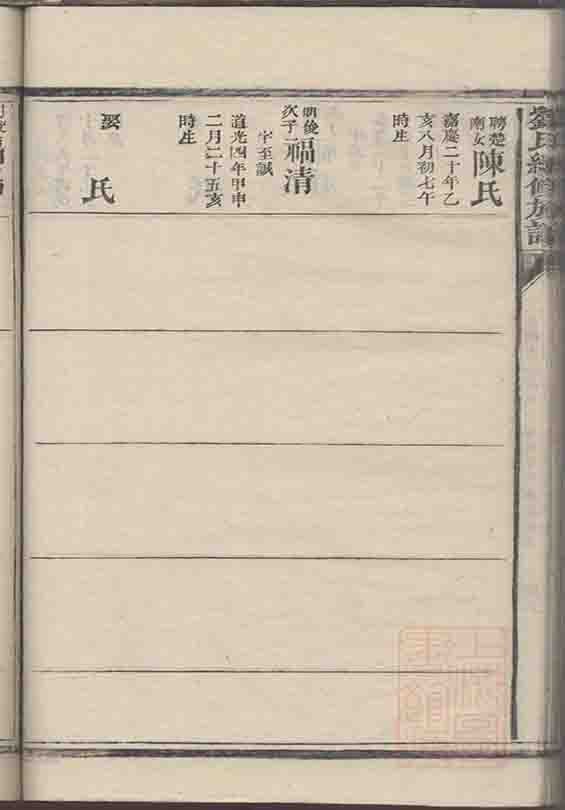 劉氏
聘楚
南女
陳氏
嘉慶二十年乙
亥八月初七午
時生
次子
福清
字至誠
道光四年甲申
二月二十五亥
時生
娶 氏